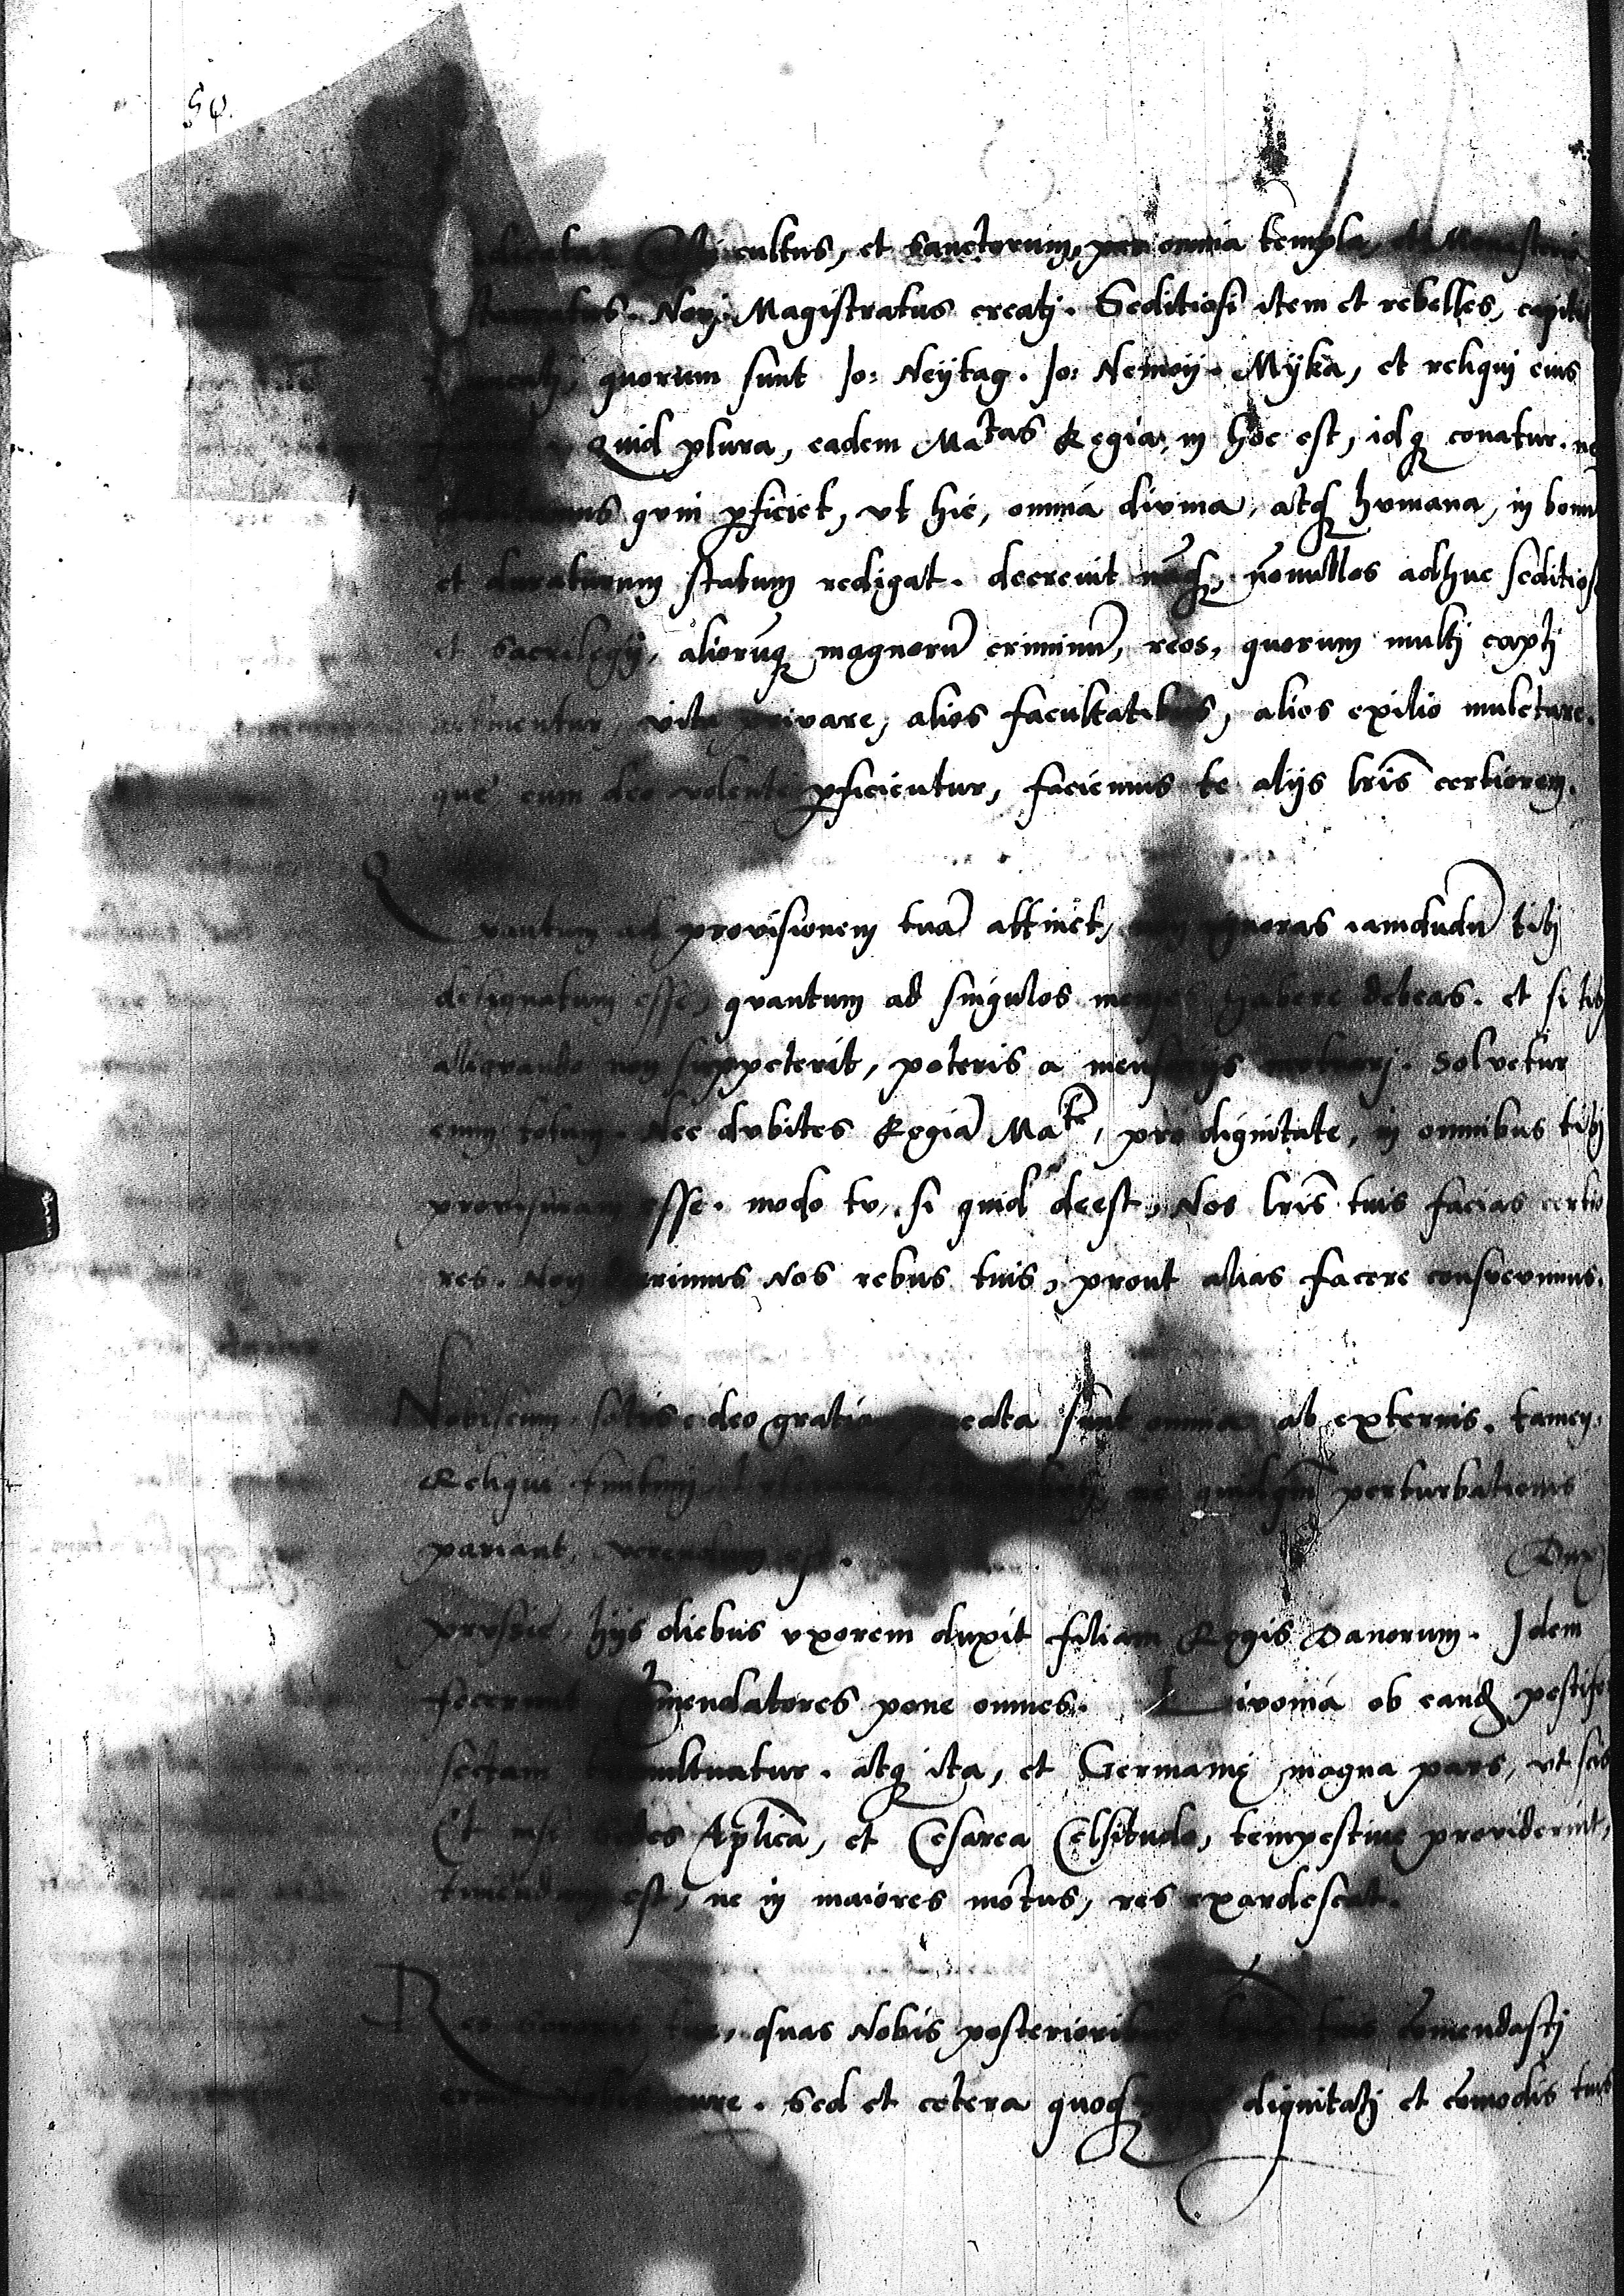 59.
cultus, et sanctorum, per omnia templa, et Monasteria
Novi Magistratus creatj. Seditiosi item et rebelles, capite
quorum sunt Jo: Neytag. Jo: Nemoy. Myka, et reliquj eius
Quid plura, eadem Matas Regia, in hoc est, idq conatur. no
quin pficiet, vt hic, omnia divina, atq hvmana, in bonum
et duraturum statum redigat. decrevit nāq, nōnullos adhuc seditios
et sacrilegij, aliorūq magnorū criminū, reos, quorum multj captj
vita privare, alios facultatibus, alios exilio mulctare.
que cum deo volente pficientur, faciemus te alijs lris certiorem.
Qvantum ad provisionem tuā attinet, non ignoras iamdudū tibj
designatum esse, qvantum ad singulos menses habere debeas. et si tibj
aliqvando non suppeterit, poteris a mensarijs mutuarj. Solvetur
enim totum. Nec dvbites Regiā Matē, pro dignitate, in omnibus tibj
provisuram esse. modo tv, si quid deest, Nos lris tuis facias certio
res. Non deerimus Nos rebus tuis, prout alias facere consvevimus.
Nobiscum satis deo gratia pacata sunt omnia ab externis. tamen,
Reliqui finitimj ne quidqm̄ perturbationis
pariant, verendum est. Dux
prvssie, hijs diebus vxorem duxit filiam Regis Danorum. Idem
fecerunt Cōmendatores pene omnes. Livonia ob eandē pestife
sectam tumultuatur. atq ita, et Germanię magna pars, vt scis
Et nisi sedes Aplica, et Cesarea Celsitudo, tempestive providerint,
timendum est, ne in maiores motus, res exardescat.
Res tue, quas Nobis posterioribus tuis cōmendastj
erunt Nobis cure. Sed et cetera quoq dignitatj et cōmodis tuis